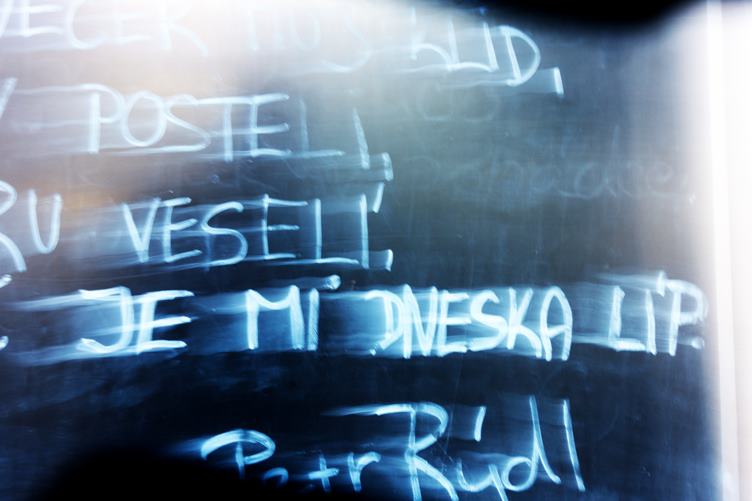 VEČER MŮJ KLID,
V POSTELI,
RU VESELÍ,
JE MI DNESKA LÍP
Petr Rýdl